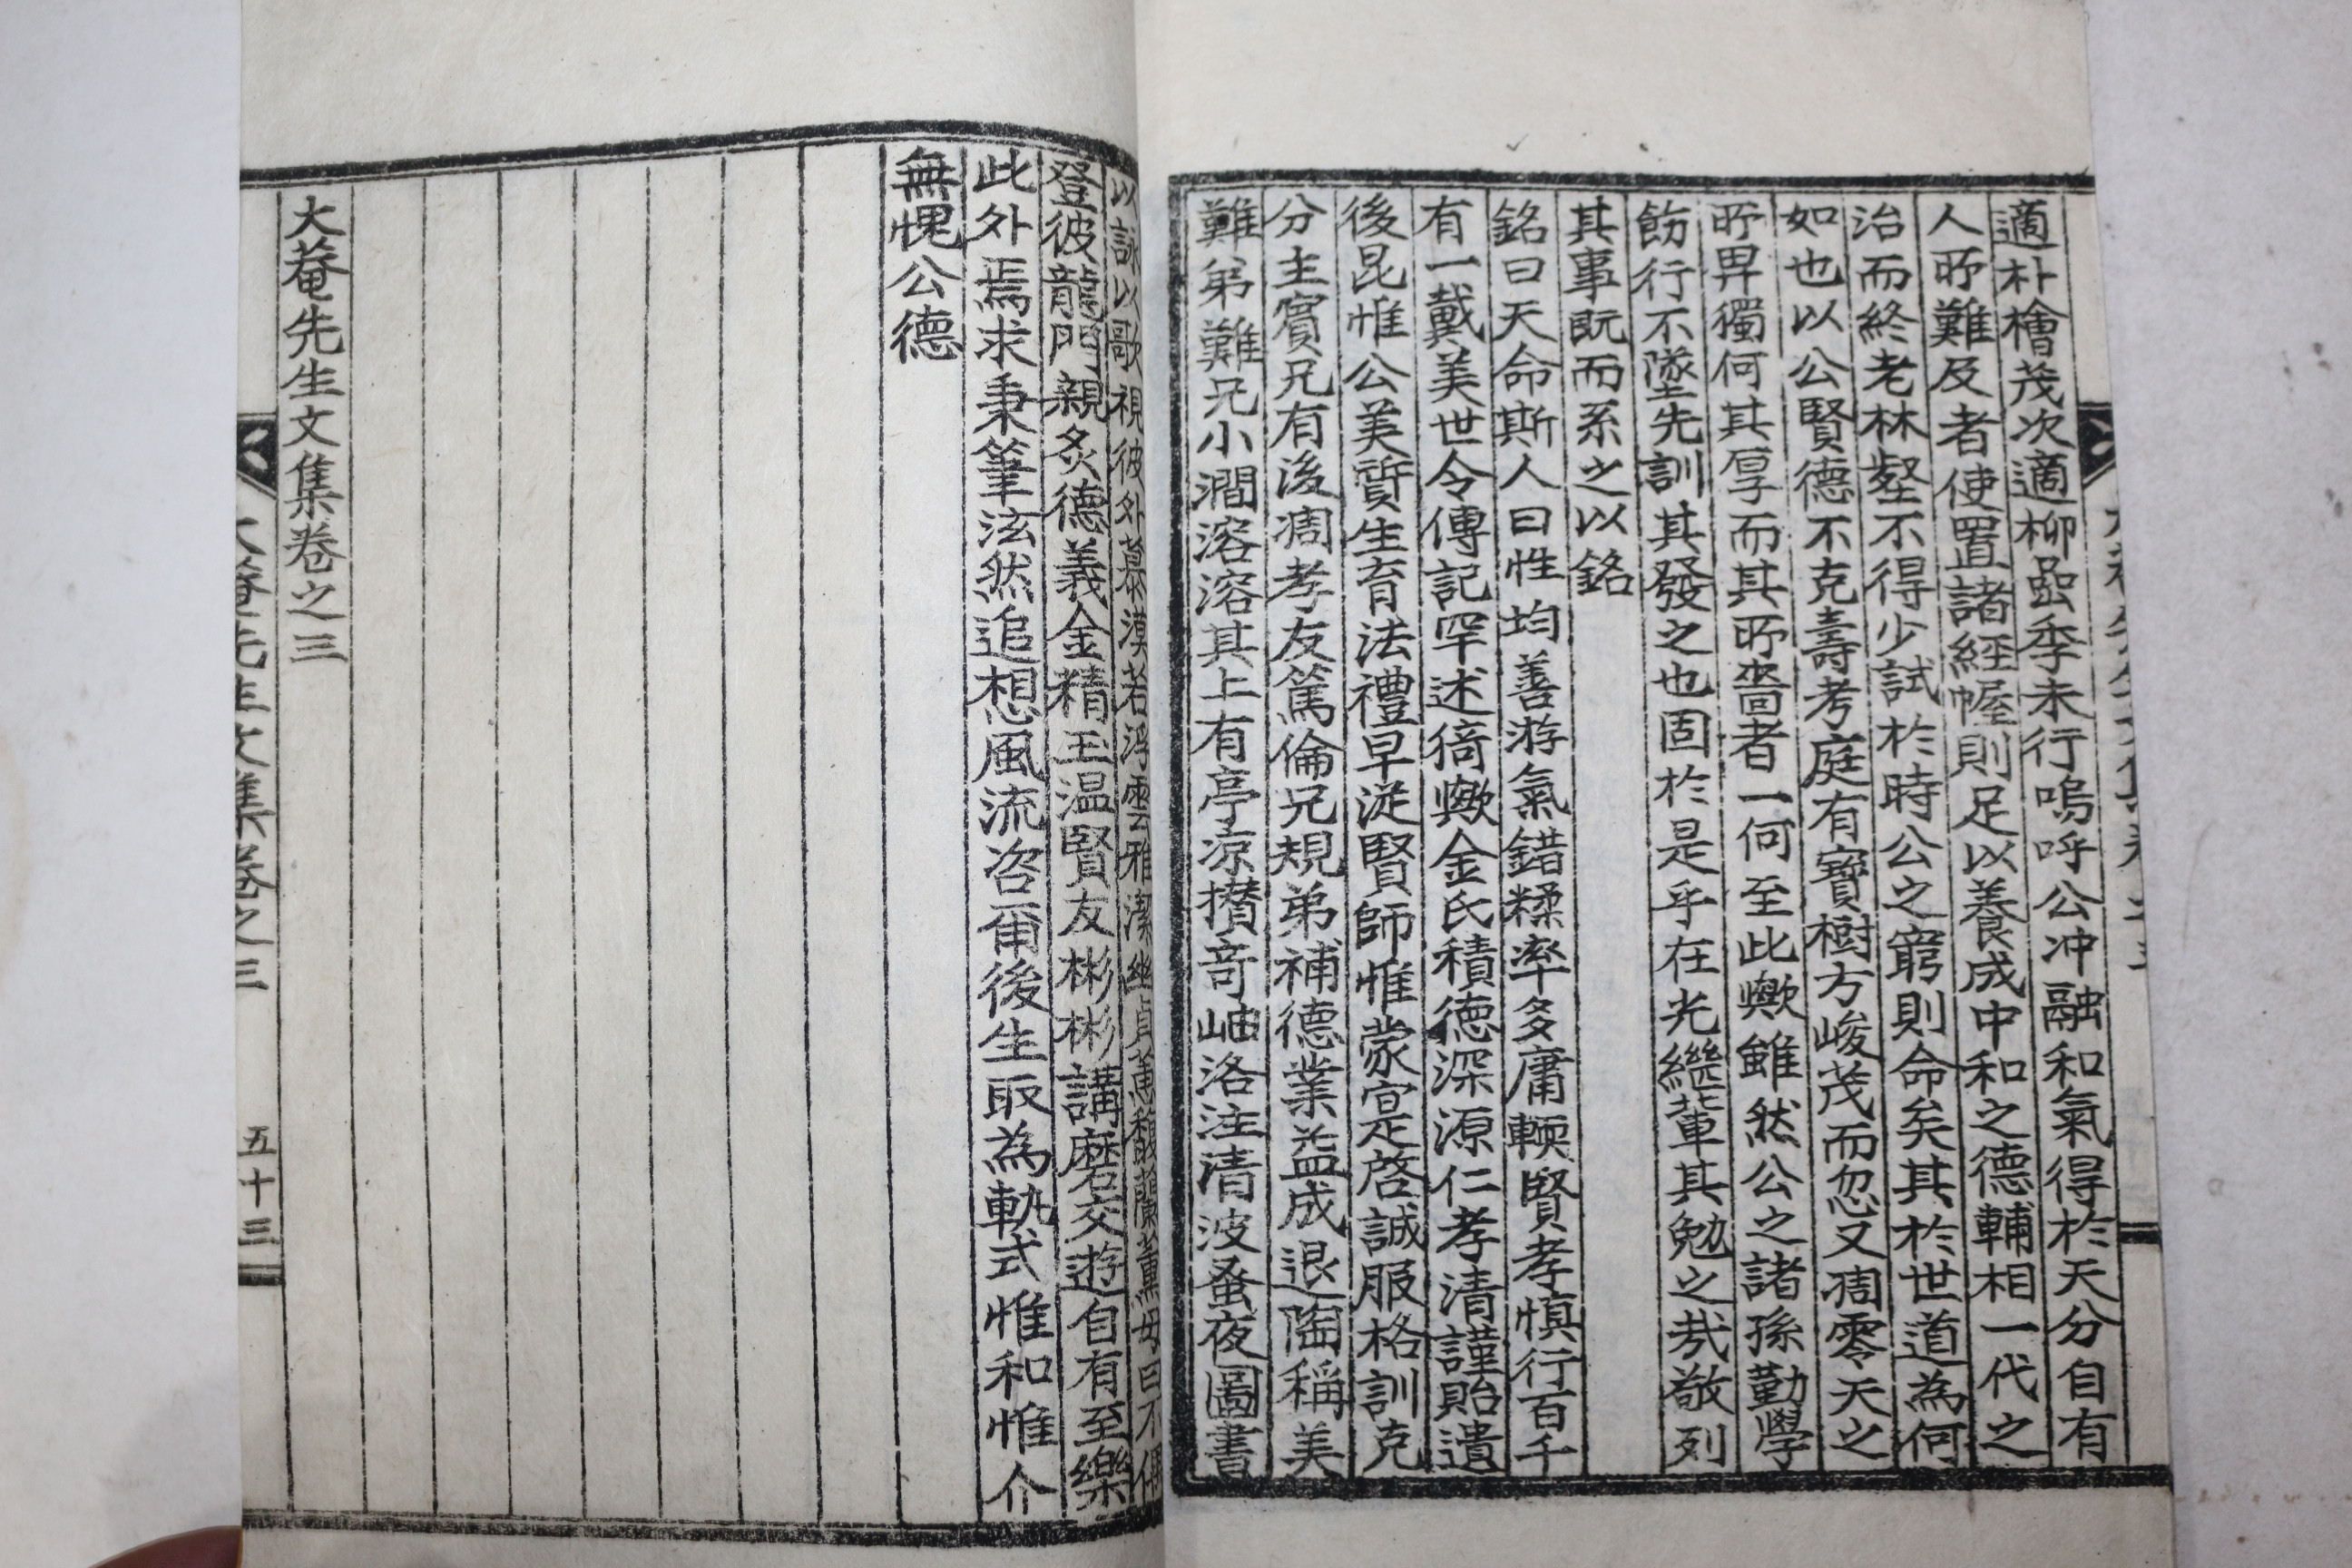 適朴檜茂次適柳㽒季未行嗚呼公冲融和氣得於天分自有
人所難及者使置諸經幄則足以養成中和之德輔相一代之
治而終老林壑不得少試於時公之窮則命矣其於世道為何
如也以公賢德不克壽考庭有寶樹方峻茂而忽又凋零天之
所畀獨何其厚而其所嗇者一何至此歟雖然公之諸孫勤學
飭行不墜先訓其發之也固於是乎在光繼輩其勉之哉敬列
其事既而系之以銘
銘曰天命斯人曰性均善游氣錯糅率多庸輭賢孝愼行百千
有一戴美世令傳記罕述猗歟金氏積德深源仁孝清謹貽遺
後昆惟公美質生育法禮早從賢師惟蒙寔啓誠服格訓克
分主賓兄有後凋孝友篤倫兄規弟補德業益成退陶稱美
難弟難兄小澗溶溶其上有亭凉攅竒岫洛注清波蚤夜圖書
以詠以歌視彼外慕漠若浮雲雅潔幽貞蕙馥蘭薰毋曰不偶
登彼龍門親炙德義金精玉温賢友彬彬講磨交遊自有至樂
此外焉求秉筆泫然追想風流咨爾後生取為軌式惟和惟介
無愧公德
大菴先生文集卷之三
大菴先生文集卷之三
五十三